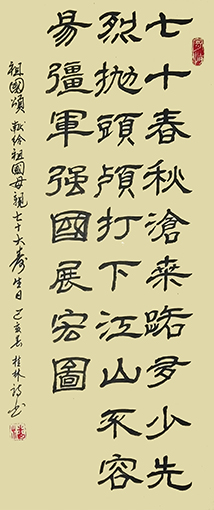 七十春秋滄桑路多少先
烈拋頭顱打下江山不容
易彊軍强國展宏圖
祖國頌 獻给祖國母親七十大壽生日 己亥春 桂林詩书